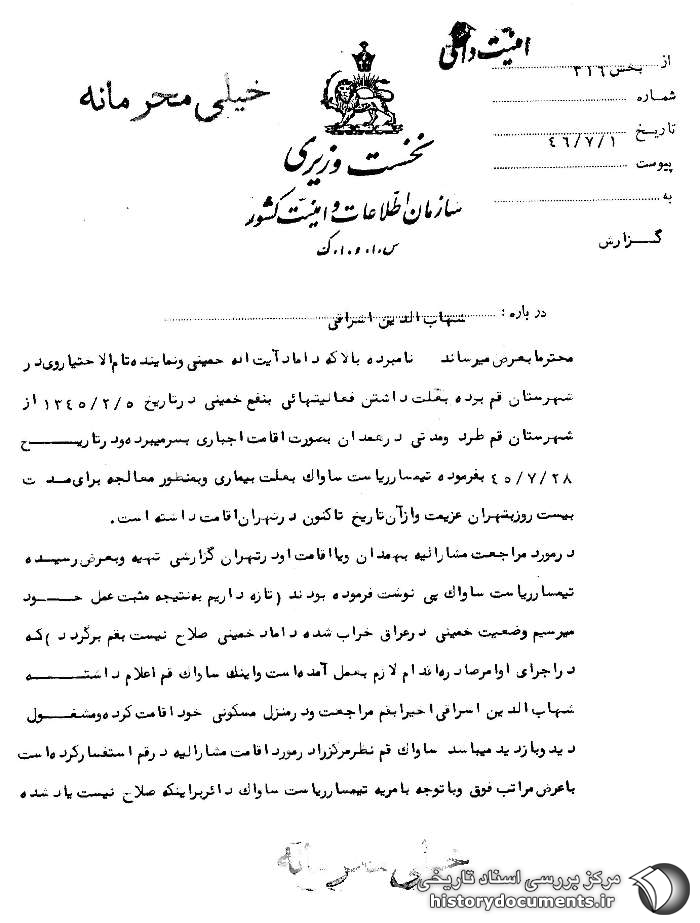 امنیت داخلی
از بخش ۳۱۶
شماره
تاریخ ۴۶/۷/۱
پیوست
به
گزارش
خیلی محرمانه
نخست وزیری
سازمان اطلاعات و امنیت کشور
س.ا.و.ا.ک
درباره : شهاب الدین اشراقی
محترما بعرض میرساند نامبرده بالا که داماد آیت اله خمینی ونماینده تام الاختیاروی در
شهرستان قم بوده بعلت داشتن فعالیتهائی بنفع خمینی درتاریخ ۱۳۴۵/۲/۵ از
شهرستان قم طرد ومدتی درهمدان بصورت اقامت اجباری بسرمیبرده ودرتاریخ
۴۵/۷/۲۸ بفرموده تیمسارریاست ساواك بعلت بیماری وبمنظور معالجه برای مدت
بیست روزبتهران عزیمت وازآن تاریخ تاکنون درتهران اقامت داشته است.
درمورد مراجعت مشارالیه بهمدان ویااقامت اودرتهران گزارشی تهیه وبعرض رسیده
تیمسارریاست ساواك پی نوشت فرموده بودند (تازه داریم به نتیجه مثبت عمل خود
میرسیم وضعیت خمینی درعراق خراب شده داماد خمینی صلاح نیست بقم برگردد) که
دراجرای اوامرصادره اقدام لازم بعمل آمده است واینك ساواك قم اعلام داشته
شهاب الدین اشراقی اخیرا بقم مراجعت ودرمنزل مسکونی خود اقامت کرده ومشغول
دید وبازدید میباشد ساواك قم نظرمرکزرادرمورد اقامت مشارالیه درقم استفسارکرده است
باعرض مراتب فوق وباتوجه باامریه تیمسارریاست ساواك دائربراینکه صلاح نیست یادشده
خیلی محرمانه
مرکز بررسی اسناد تاریخی
historydocuments.ir